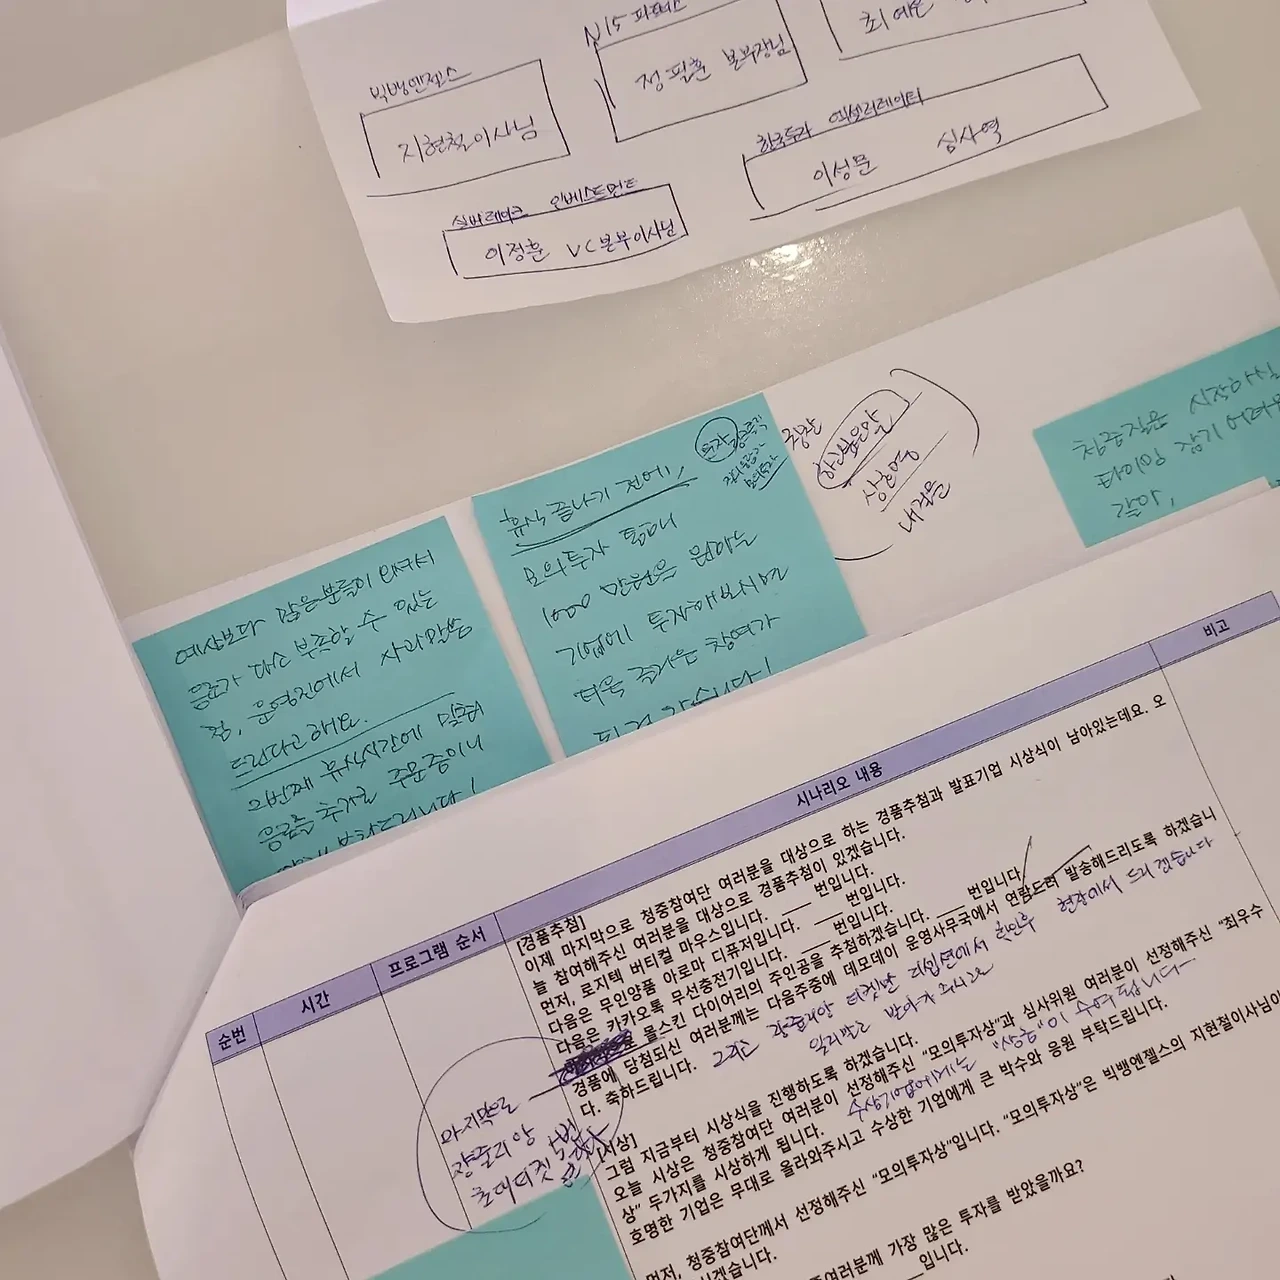 N15 파트너스
최예은
빅뱅엔젤스
정필훈 본부장님
지현철이사님
한국투자 액셀러레이터
이성문 심사역
실버레이크 인베스트먼트
이정훈 VC본부이사님
예상보다 많은분들이 와주셔
음료가 다소 부족할 수 있는
점, 운영진에서 사과말씀
드린다고해요.
2번째 휴식시간에 맞춰서
음료를 추가로 주문중이니
휴식 끝나기 전에,
모의투자 툴에
1000 만원을 원하는
기업에 투자해보시면
더욱 즐거운 참여가
되실 것입니다!
하고싶은말
내질문
청중질문 시작하실
타이밍 잡기 어려울
같아,
순번
시간
프로그램 순서
시나리오 내용
비고
[경품추첨]
이제 마지막으로 청중참여단 여러분을 대상으로 하는 경품추첨과 발표기업 시상식이 남아있는데요. 오
늘 참여해주신 여러분을 대상으로 경품추첨이 있겠습니다.
먼저, 로지텍 버티컬 마우스입니다. ___ 번입니다.
다음은 무인양품 아로마 디퓨저입니다. ___ 번입니다.
다음은 카카오톡 무선충전기입니다. ___ 번입니다.
몰스킨 다이어리의 주인공을 추첨하겠습니다. ___ 번입니다.
경품에 당첨되신 여러분께는 다음주중에 데모데이 운영사무국에서 연락드려 발송해드리도록 하겠습니
다. 축하드립니다.
현장에서 드리겠습니다
마지막으로
장줄리앙
초대티켓
[시상]
그럼 지금부터 시상식을 진행하도록 하겠습니다.
오늘 시상은 청중참여단 여러분이 선정해주신 “모의투자상”과 심사위원 여러분이 선정해주신 “최우수
상” 두가지를 시상하게 됩니다.
수상기업에게는 "상금"이 수여됩니다
호명한 기업은 무대로 올라와주시고 수상한 기업에게 큰 박수와 응원 부탁드립니다.
먼저, 청중참여단께서 선정해주신 “모의투자상”입니다. “모의투자상”은 빅뱅엔젤스의 지현철이사님이
여러분께 가장 많은 투자를 받았을까요?
___입니다.